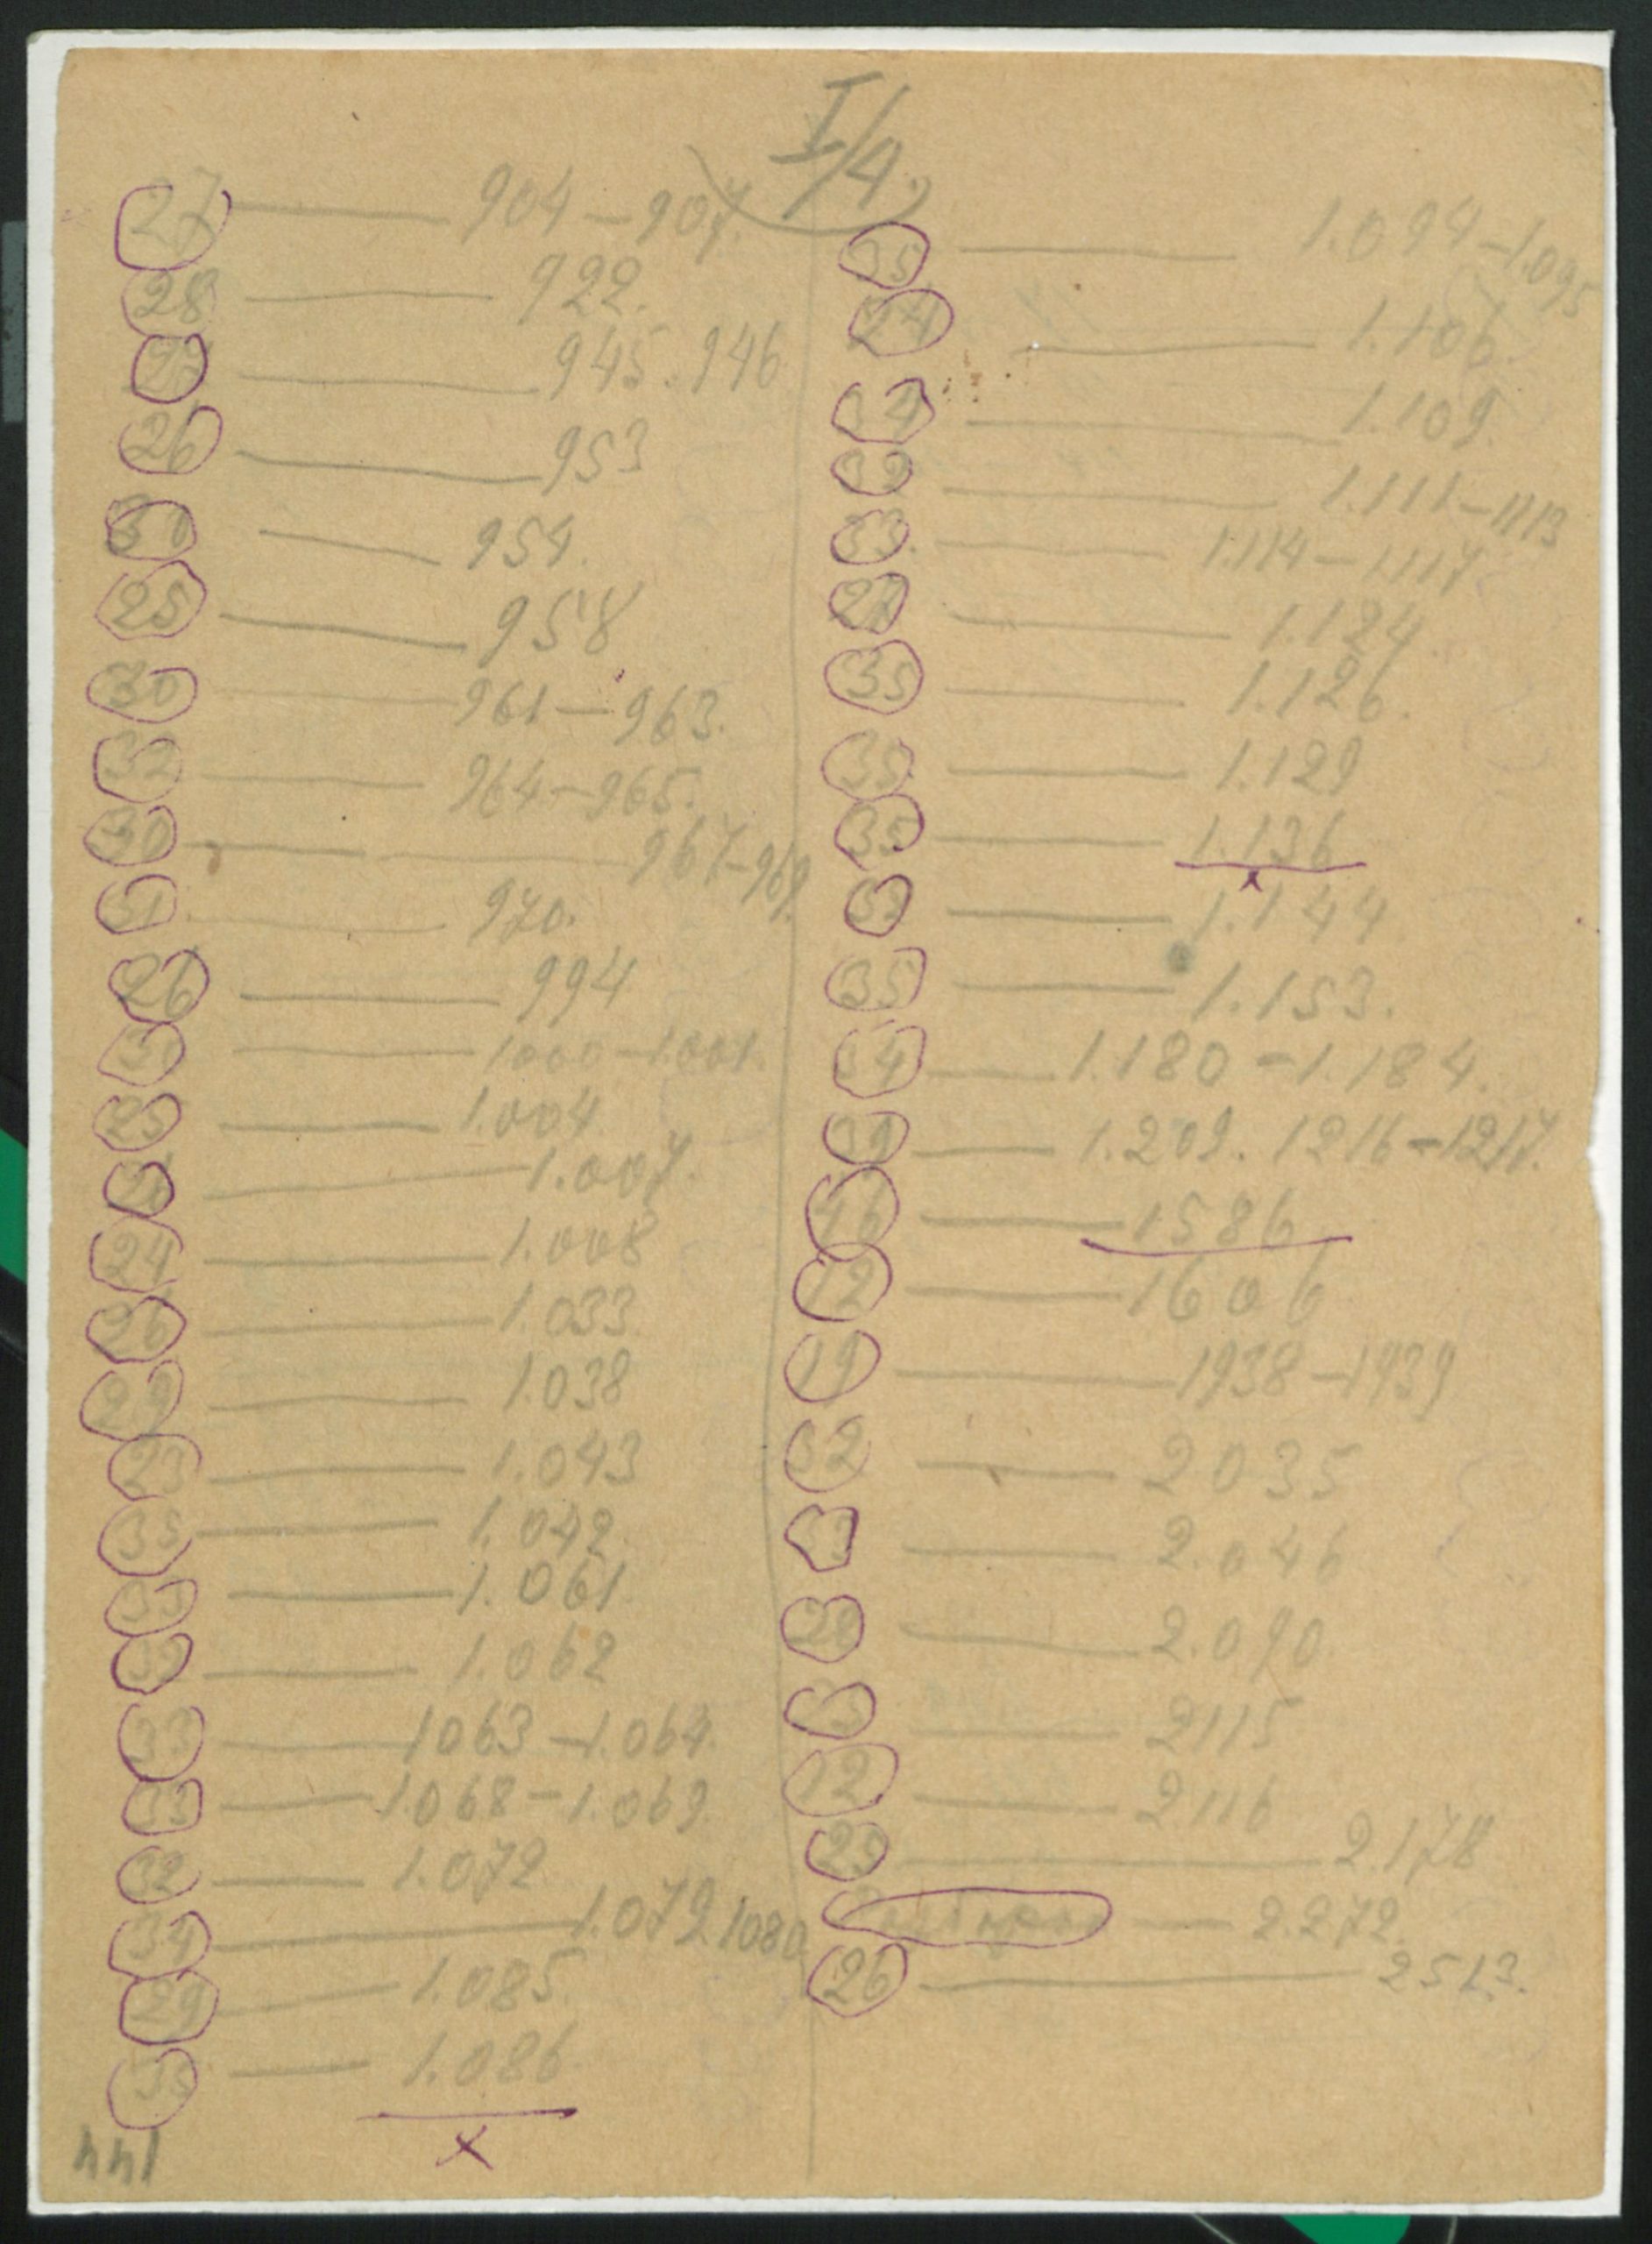 I/4
27 — 904 – 907.
28 — 922.
— 945. 946
26 — 953
30 — 954.
25 — 958
30 — 961 – 963.
32 — 964 – 965.
30 — 967 – 969.
31 — 970.
26 — 994
— 1000 – 1.001.
25 — 1.004
— 1.007.
24 — 1.008
26 — 1.033.
29 — 1.038
23 — 1.043
35 — 1.042.
35 — 1.061.
— 1.062
33 — 1063 – 1.064.
33 — 1.068 – 1.069.
32 — 1.072
34 — 1.079. 1080
29 — 1.085.
— 1.086.
x
35 — 1.094 – 1.095
24 — 1.106.
34 — 1.109.
— 1.111 – 1113
33. — 1.114 – 1.117
27 — 1.124.
35 — 1.126.
35 — 1.129
35 — 1.136
x
32 — 1.144
35 — 1.153.
34 — 1.180 – 1.184.
— 1.209. 1216 – 1217.
46 — 1586
12 — 1606
19 — 1938 – 1939
32 — 2035
— 2.046
— 2.090.
— 2115
12 — 2116
25 — 2.178
— 2.272.
26 — 2513.
144